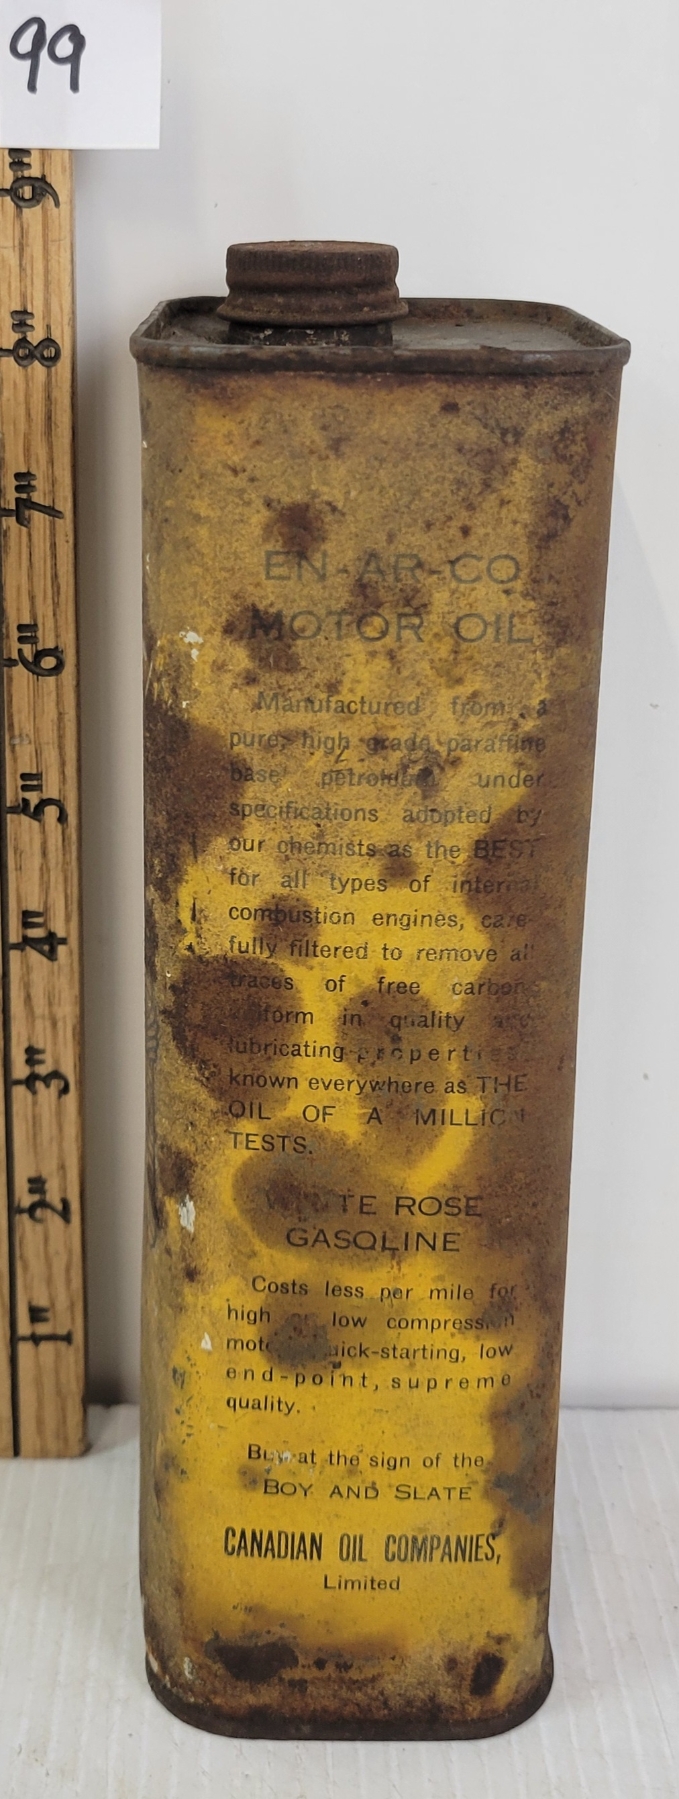 99
9"
8"
7"
6"
5"
4"
3"
2"
1"
EN-AR-CO
MOTOR OIL
Manufactured from a
pure, high grade paraffine
base petroleum under
specifications adopted by
our chemists as the BEST
for all types of internal
combustion engines, care-
fully filtered to remove all
traces of free carbon,
uniform in quality and
lubricating properties,
known everywhere as THE
OIL OF A MILLION
TESTS.
WHITE ROSE
GASOLINE
Costs less per mile for
high or low compression
motors, quick-starting, low
end-point, supreme
quality.
Buy at the sign of the
BOY AND SLATE
CANADIAN OIL COMPANIES,
Limited